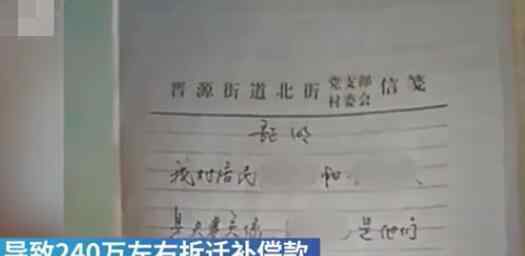 晋源街道北街党支部村委会信笺
证明
我村居民 和 、
是夫妻关系 是他们
导致240万左右拆迁补偿款